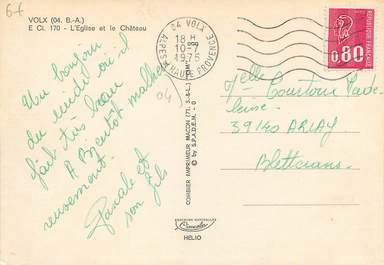 6-f
VOLX (04. B.-A.)
E CL 170 - L'Eglise et le Château
04 VOLX
18 H
10-7
1976
ALPES DE HAUTE PROVENCE
REPUBLIQUE FRANÇAISE
POSTES
0,80
Un bonjour
du midi où il
fait très beau
A Bientôt malheu-
reusement.
Pascale et
son fils
(04)
COMBIER IMPRIMEUR MACON (71. S.-&-L.)
© by S.P.A.D.E.M.
Combier
HELIO
Melle Courtoux Jade-
leine
39140 ARLAY
Bletterans